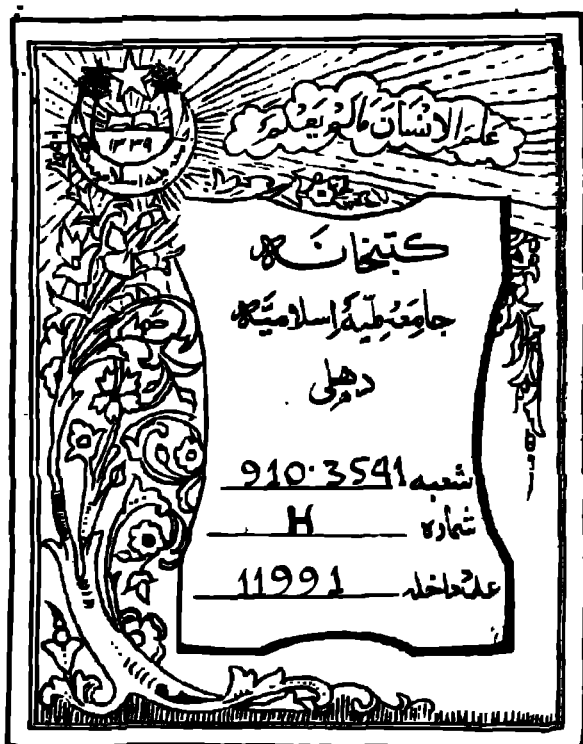 علم الانسان مالم يعلم
۱۳۳۹
کتبخانہ
جامعہ ملیہ اسلامیہ
دہلی
شعبہ 910.3541
شمارہ H
عدد داخلہ 11991